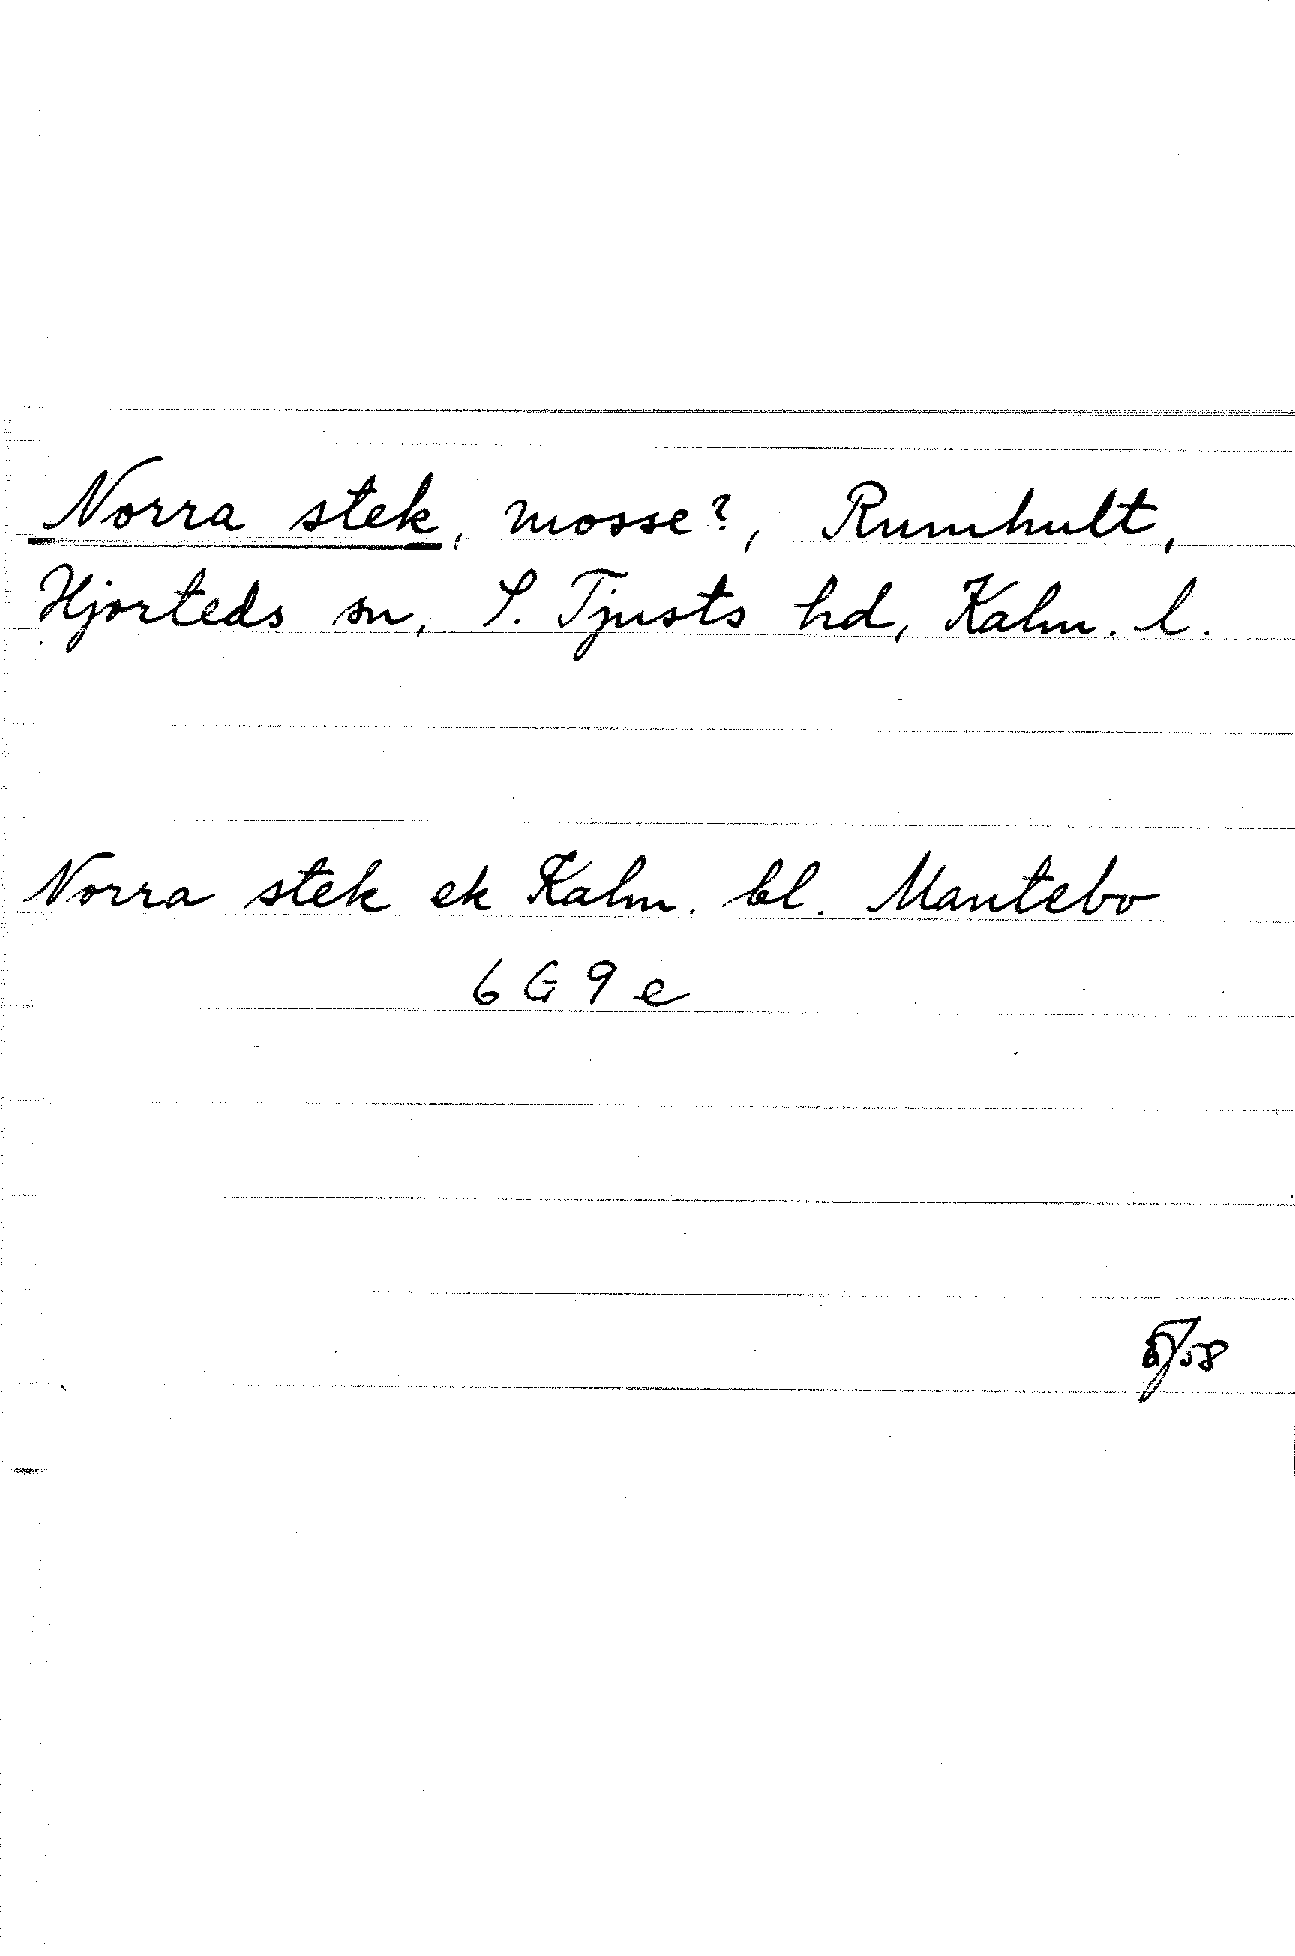 Norra stek, mosse?, Rumhult,
Hjorteds sn, S. Tjusts hd, Kalm. l.
Norra stek ek Kalm. bl. Mantebo
6 G 9 e